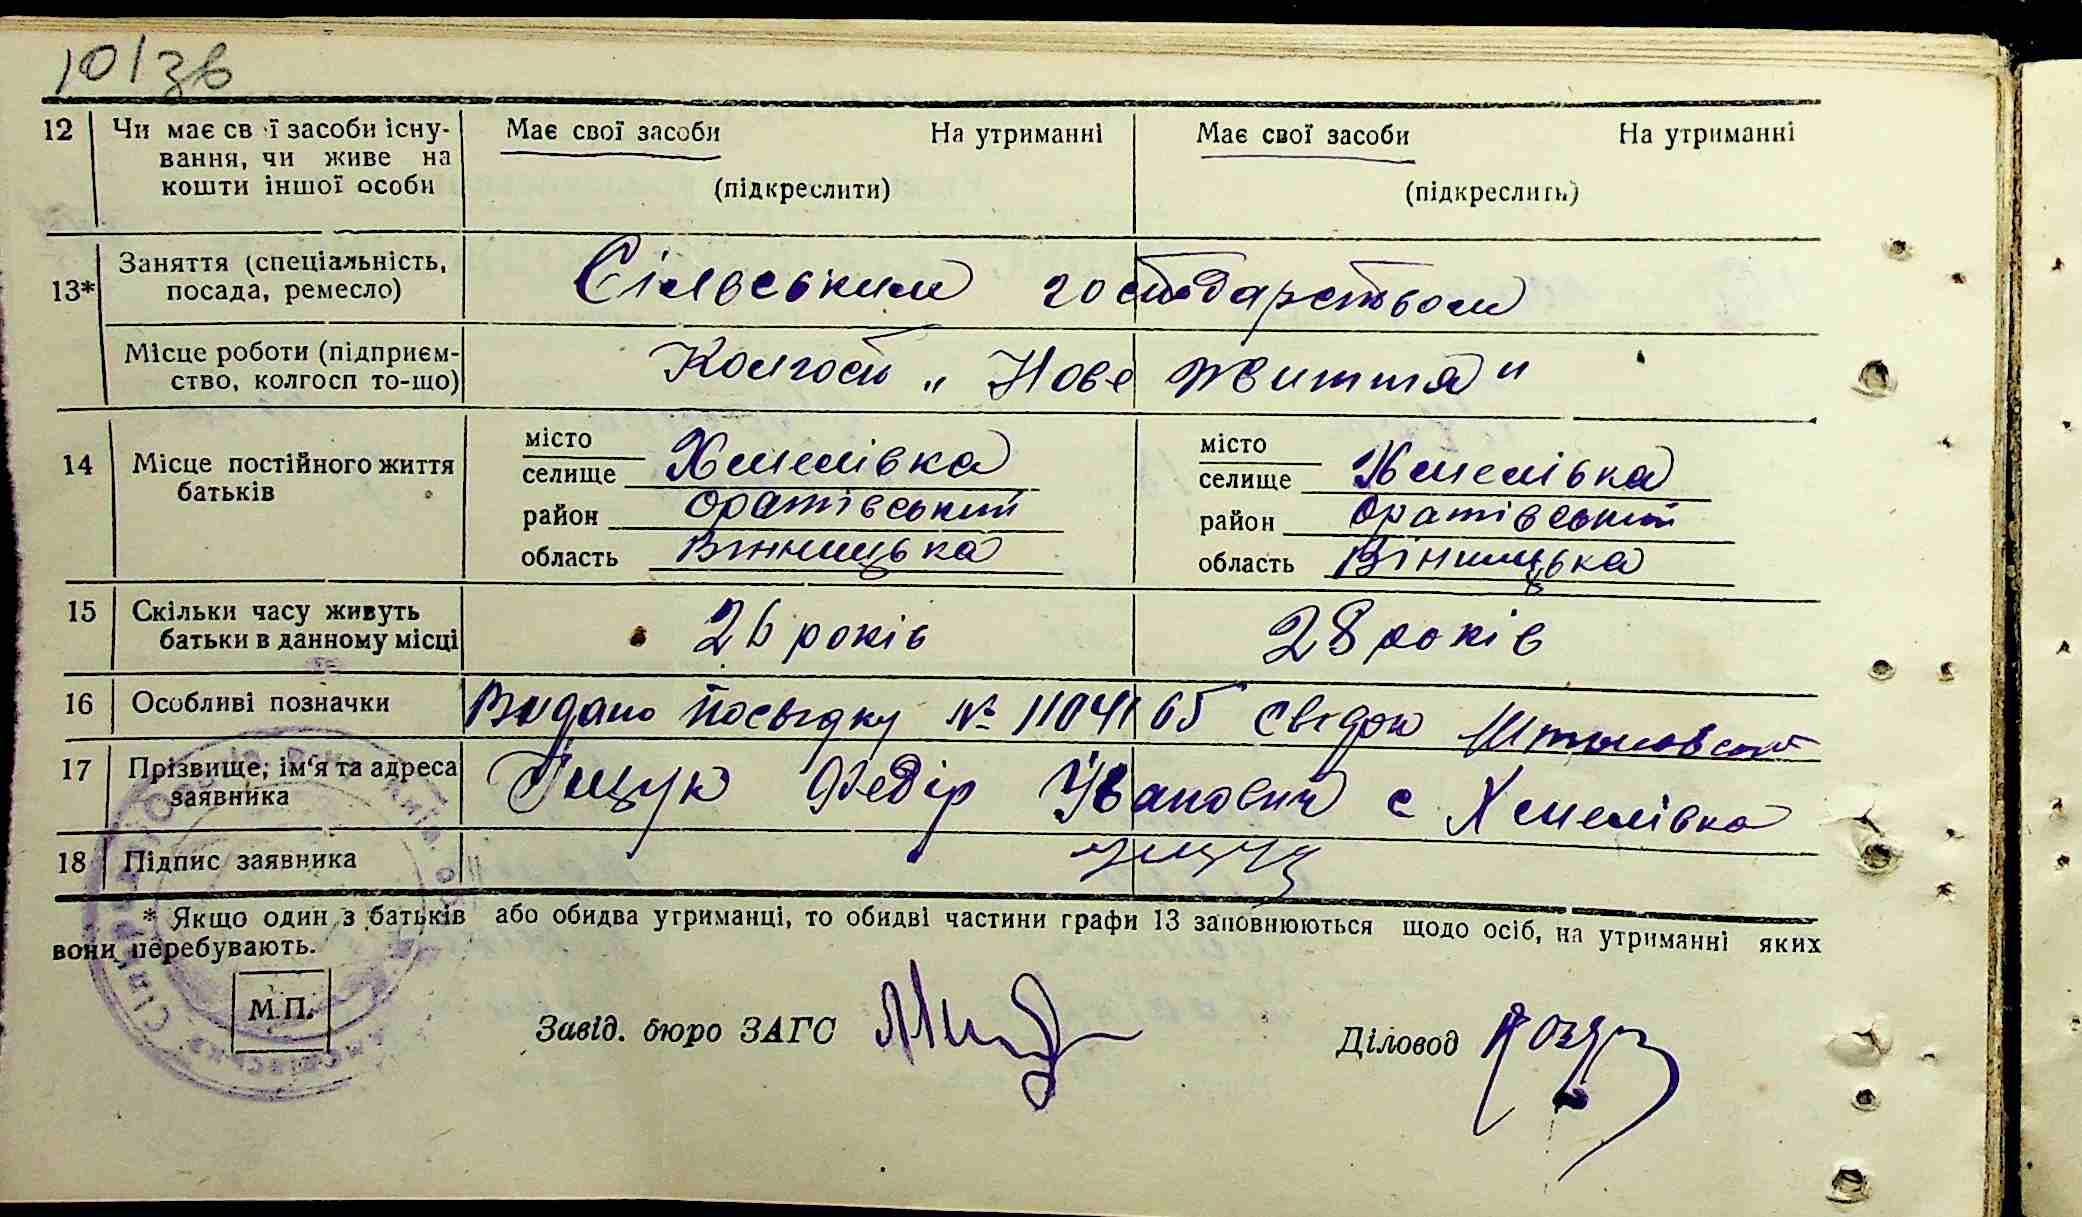 10/зв
12 Чи має св ї засоби існу- Має свої засоби На утриманні Має свої засоби На утриманні
вання, чи живе на
кошти іншої особи (підкреслити) (підкреслить)
13* Заняття (спеціальність,
посада, ремесло) Сільським господарством
Місце роботи (підприєм-
ство, колгосп то-що) Колгосп „Нове життя"
14 Місце постійного життя
батьків
місто
селище Хмелівка
район Оратівський
область Вінницька
місто
селище Хмелівка
район Оратівський
область Вінницька
15 Скільки часу живуть
батьки в данному місці 26 років 28 років
16 Особливі позначки Видано посвідку № 1104165
17 Прізвище, ім'я та адреса
заявника Гищук Федір Іванович с Хмелівка
18 Підпис заявника
* Якщо один з батьків або обидва утриманці, то обидві частини графи 13 заповнюються щодо осіб, на утриманні яких
вони перебувають.
М.П.
Завід. бюро ЗАГС Діловод